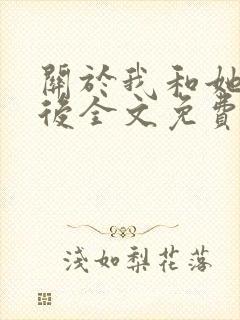 關於我和她
後全文免費
淺如梨花落